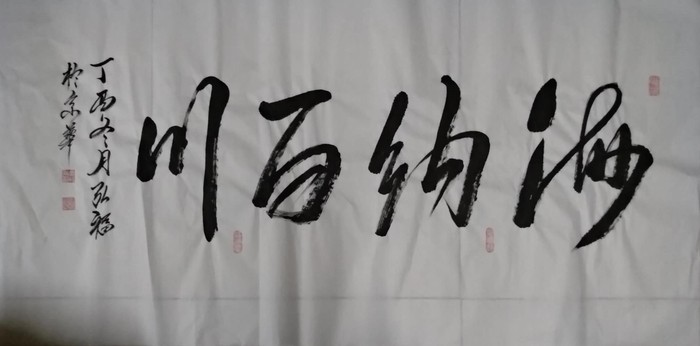 海纳百川
丁酉冬月弘福
於京華